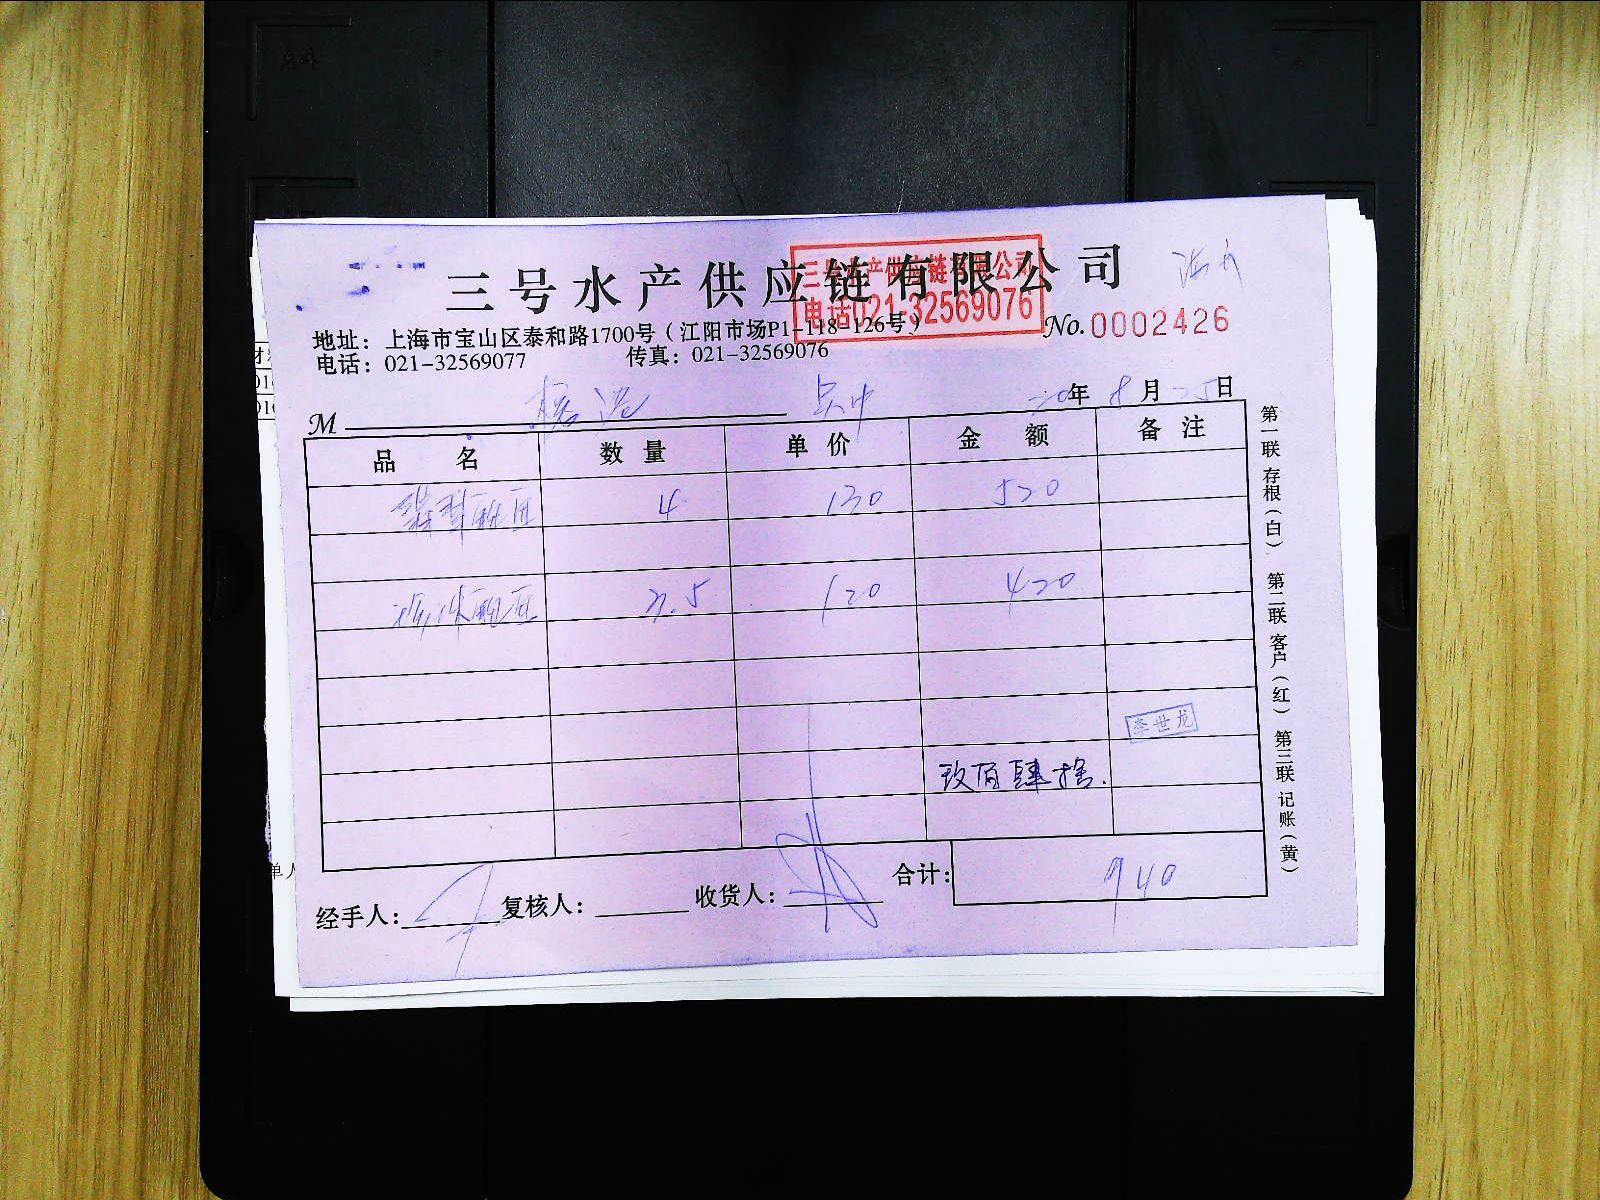 三号水产供应链有限公司
三号水产供应链有限公司
电话021-32569076
地址：上海市宝山区泰和路1700号（江阳市场P1-118-126号）
No.0002426
电话：021-32569077 传真：021-32569076
M 年 8 月 25 日
品 名 数 量 单 价 金 额 备 注
4 130 520
3.5 120 420
李世龙
玖佰肆拾.
合计： 940
经手人： 复核人： 收货人：
第一联 存根（白） 第二联 客户（红） 第三联 记账（黄）